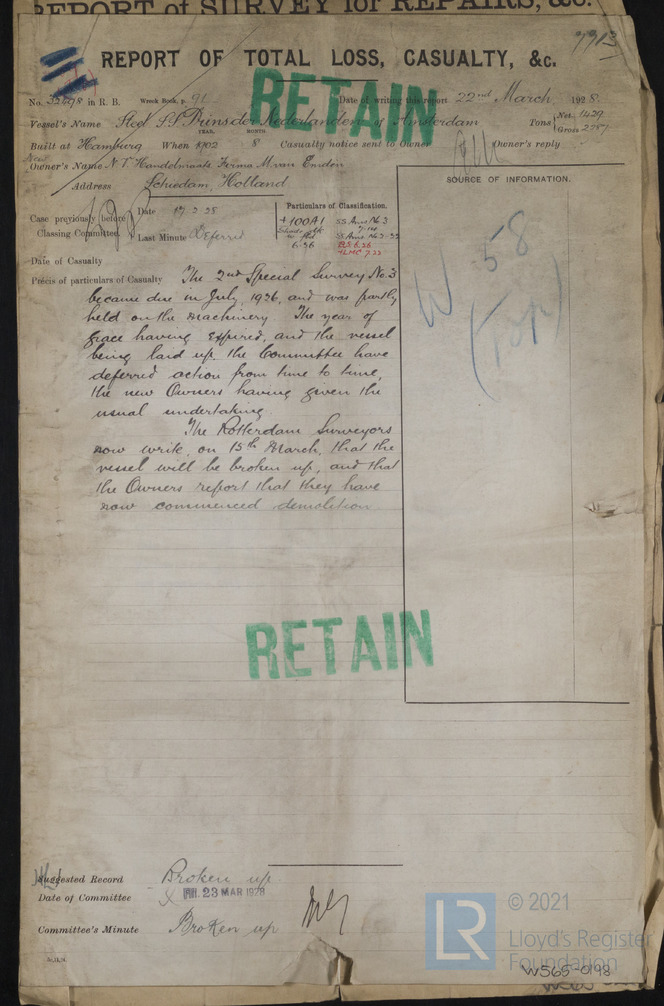 REPORT of SURVEY for REPAIRS, &c.
7913
REPORT OF TOTAL LOSS, CASUALTY, &c.
RETAIN
No. in R. B. Wreck Book, p. 91 Date of writing this report 22nd March 1928
Vessel's Name Steel S.S. Prins der Nederlanden of Amsterdam Tons Net 1429
Gross
YEAR. MONTH
Built at Hamburg When 1902 8 Casualty notice sent to Owner Owner's reply
New
Owner's Name N.V. Handelmaats Firma M. van Emden
Address Schiedam, Holland
SOURCE OF INFORMATION.
Case previously before Classing Committee
Date 17.2.28
Last Minute Deferred
Particulars of Classification.
+100A1
6.26
SS Ams No 3
BS 6.26
+LMC 7.22
W 58
(Top)
Date of Casualty
Précis of particulars of Casualty The 2nd Special Survey No. 3
became due in July, 1926, and was partly
held on the machinery The year of
grace having expired, and the vessel
being laid up, the Committee have
deferred action from time to time,
the new Owners having given the
usual undertaking.
The Rotterdam Surveyors
now write, on 15th March, that the
vessel will be broken up, and that
the Owners report that they have
now commenced demolition
RETAIN
Suggested Record Broken up
Date of Committee FRI. 23 MAR 1928
Committee's Minute Broken up
LR
© 2021
Lloyd's Register
Foundation
W565-0198